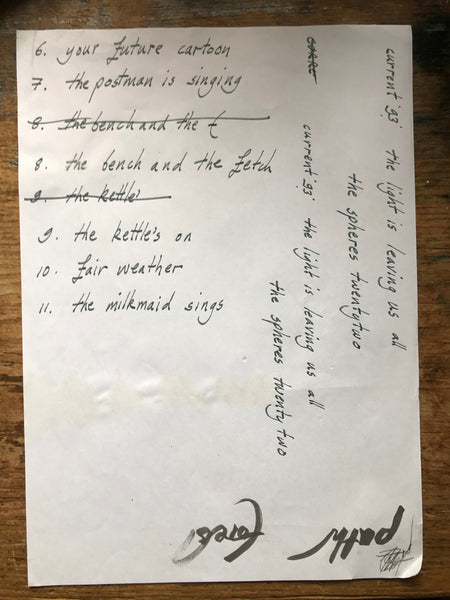 6. your future cartoon
7. the postman is singing
8. the bench and the f
8. the bench and the fetch
9. the kettle'
9. the kettle's on
10. fair weather
11. the milkmaid sings
current '93' the light is leaving us all
the spheres twentytwo
current '93' the light is leaving us all
the spheres twenty two
path